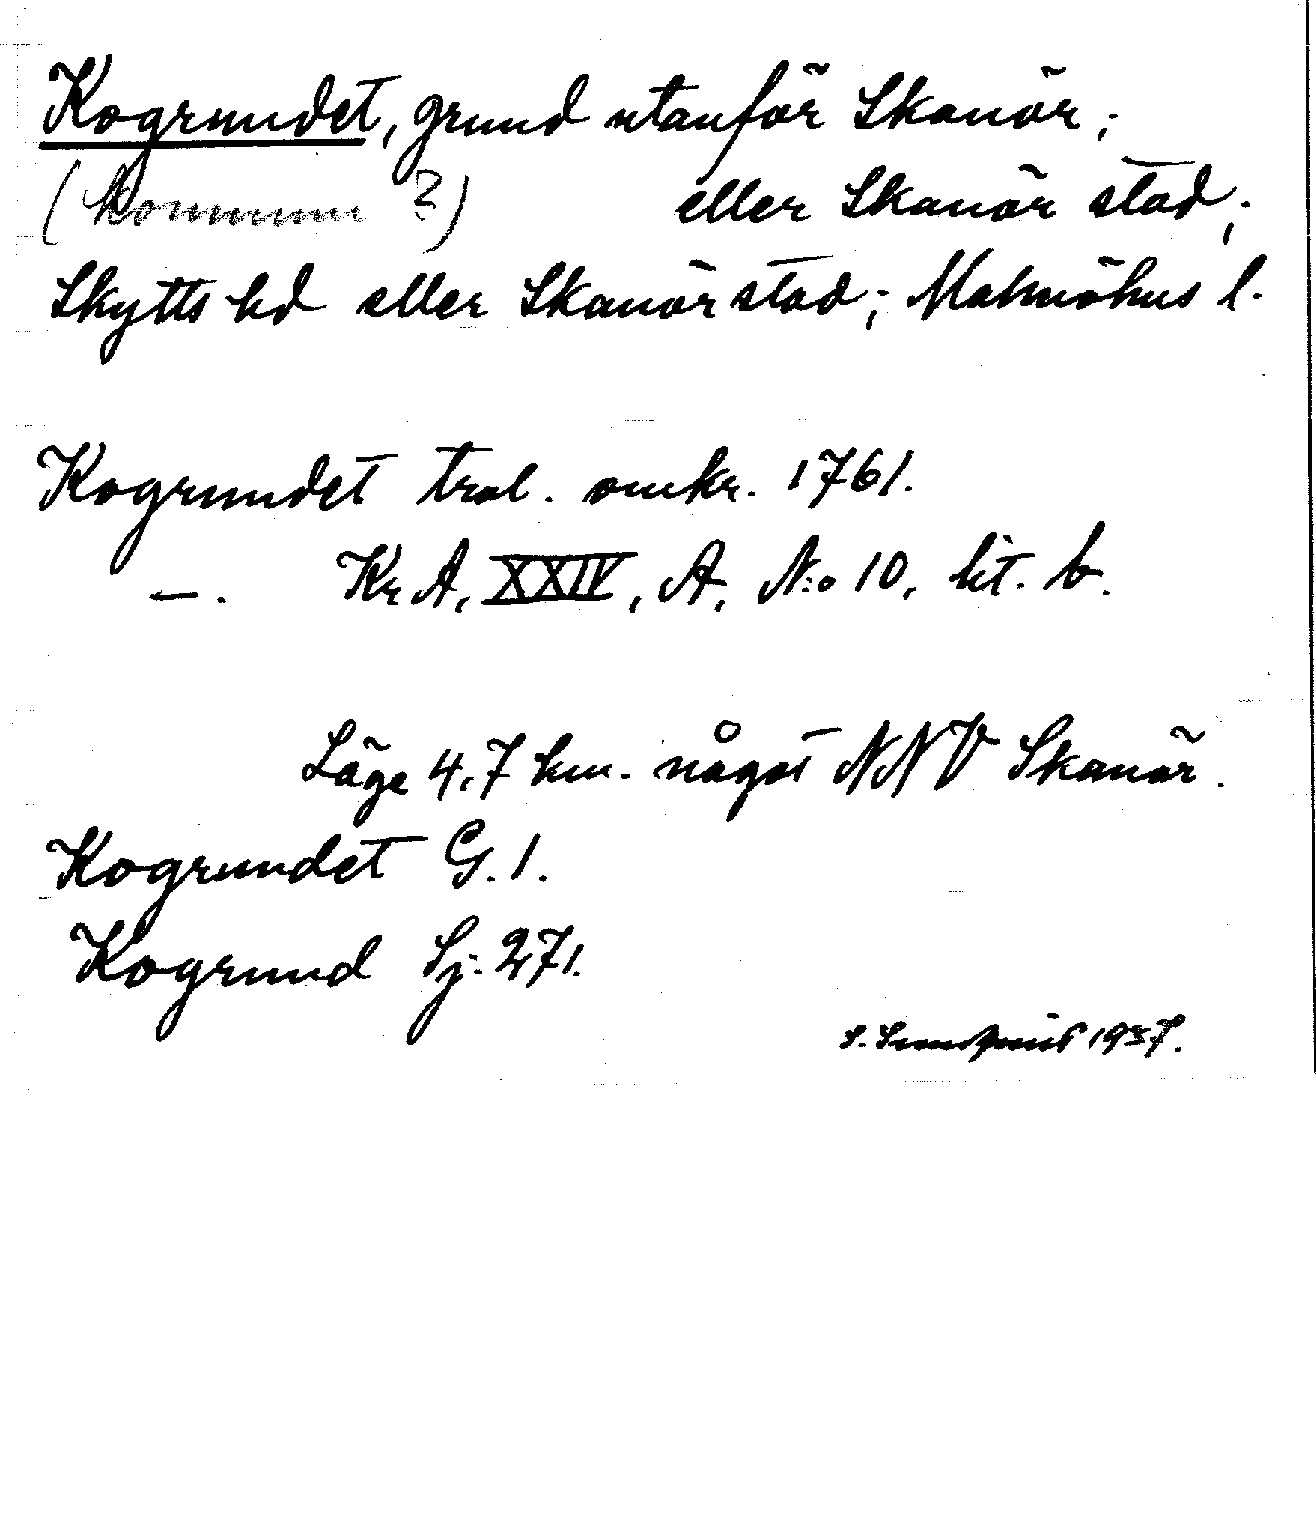 Kogrundet, grund utanför Skanör;
(kommun ?) eller Skanör stad;
Skytts hd eller Skanör stad; Malmöhus l.
Kogrundet trol. omkr. 1761.
—. Kr A, XXIV, A, N:o 10, lit. b.
Läge 4,7 km. något NNV Skanör.
Kogrundet G. 1.
Kogrund Sj. 271.
S. 1937.